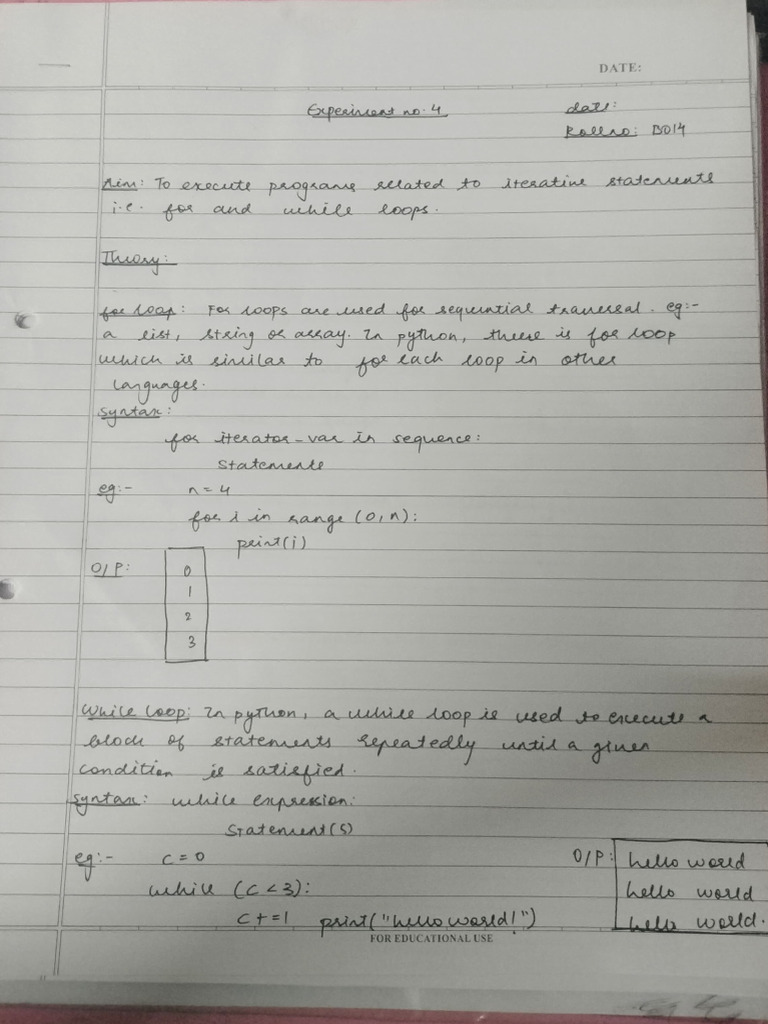 DATE:
Experiment no. 4
date:
Rollno: B014
Aim: To execute programs related to iterative statements
i.e. for and while loops.
Theory:
for loop: For loops are used for sequential traversal. eg:-
a list, string or array. In python, there is for loop
which is similar to for each loop in other
languages.
syntax:
for iterator-var in sequence:
statements
eg:- n=4
for i in range (0,n):
print(i)
O/P: 0
1
2
3
While loop: In python, a while loop is used to execute a
block of statements repeatedly until a given
condition is satisfied.
syntax: while expression:
statement(s)
eg:- c=0 O/P: hello world
while (c<3): hello world
c+=1 print("hello world!") hello world.
FOR EDUCATIONAL USE